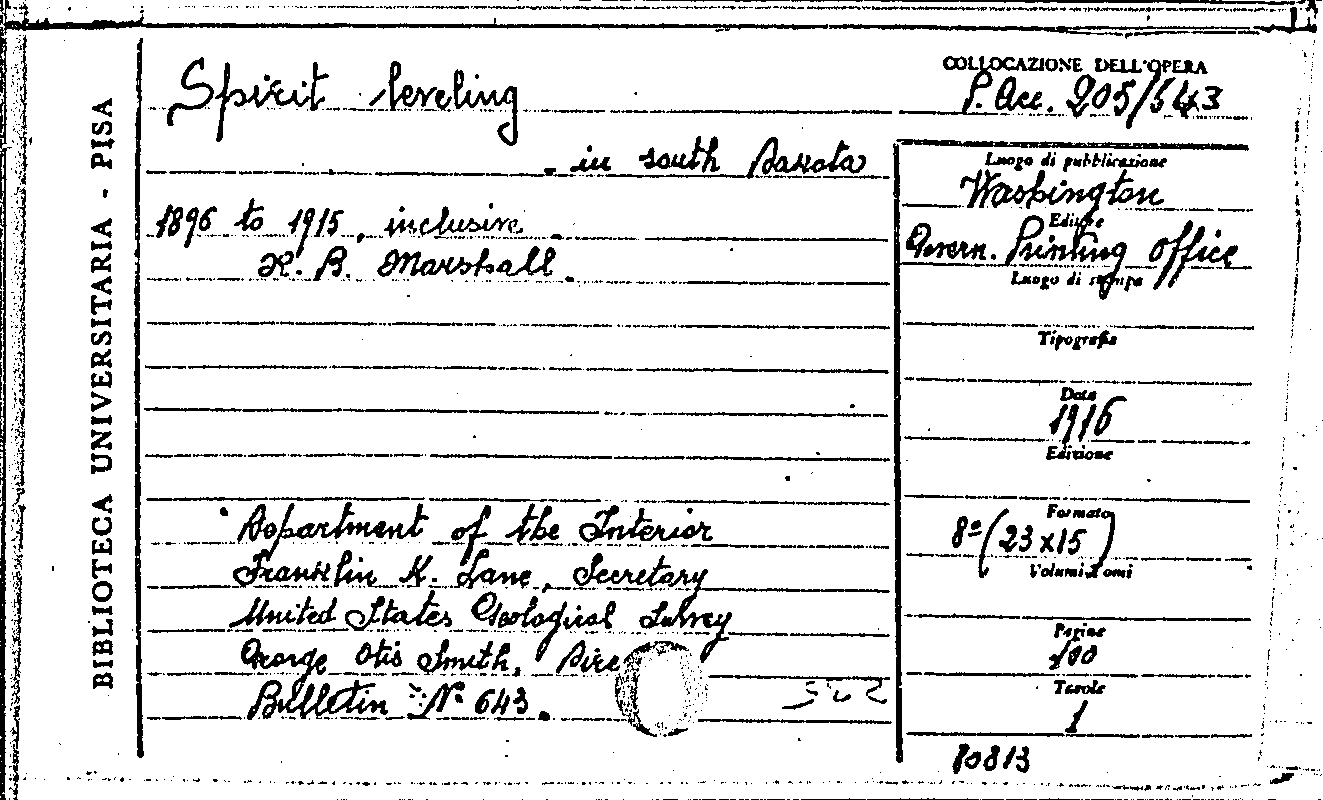 BIBLIOTECA UNIVERSITARIA - PISA
Spirit leveling
in south Dakota
1896 to 1915, inclusive.
R. B. Marshall.
Department of the Interior
Franklin K. Lane, Secretary
United States Geological Survey
George Otis Smith, Dire
Bulletin N° 643.
COLLOCAZIONE DELL'OPERA
P. Acc. 205/543
Luogo di pubblicazione
Washington
Editore
Govern. Printing Office
Luogo di stampa
Tipografia
Data
1916
Edizione
Formato
8° (23x15)
Volumi Tomi
Pagine
Tavole
1
10813